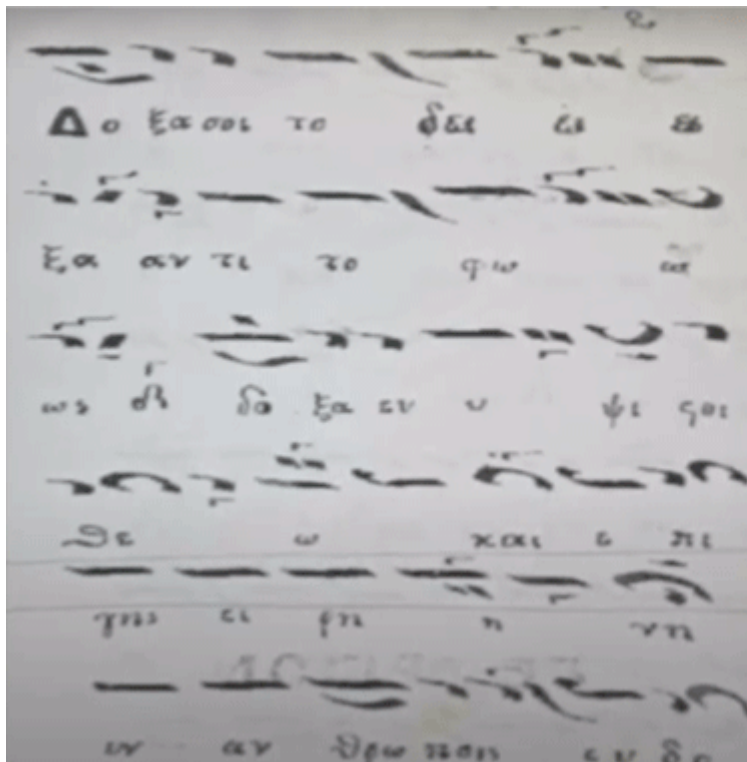 Δο ξα σοι το δει ει ει
ξα αν τι το φω ω
ως δο ξα εν υ ψι ςοι
Θε ω και ε πι
γης ει ρη η νη
εν αν θρω ποις ε υ δο